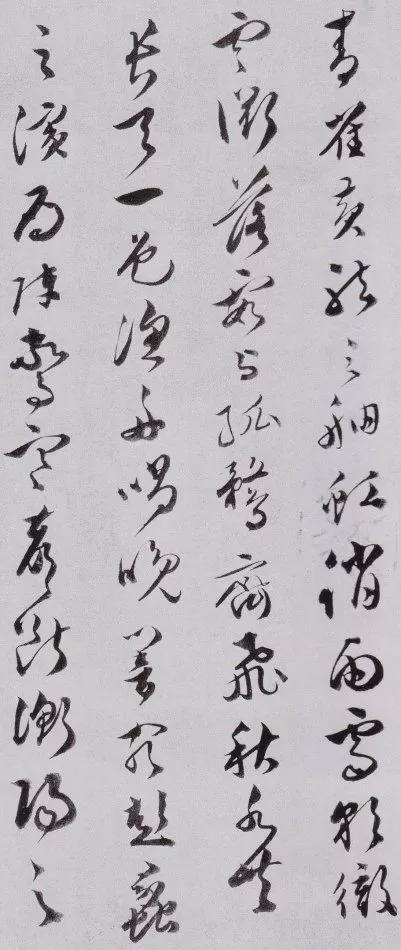 青雀黃龍之舳虹銷雨霽彩徹
雲衢落霞与孤鶩齊飛秋水共
長天一色漁舟唱晚響窮彭蠡
之濱雁陣驚寒聲斷衡陽之